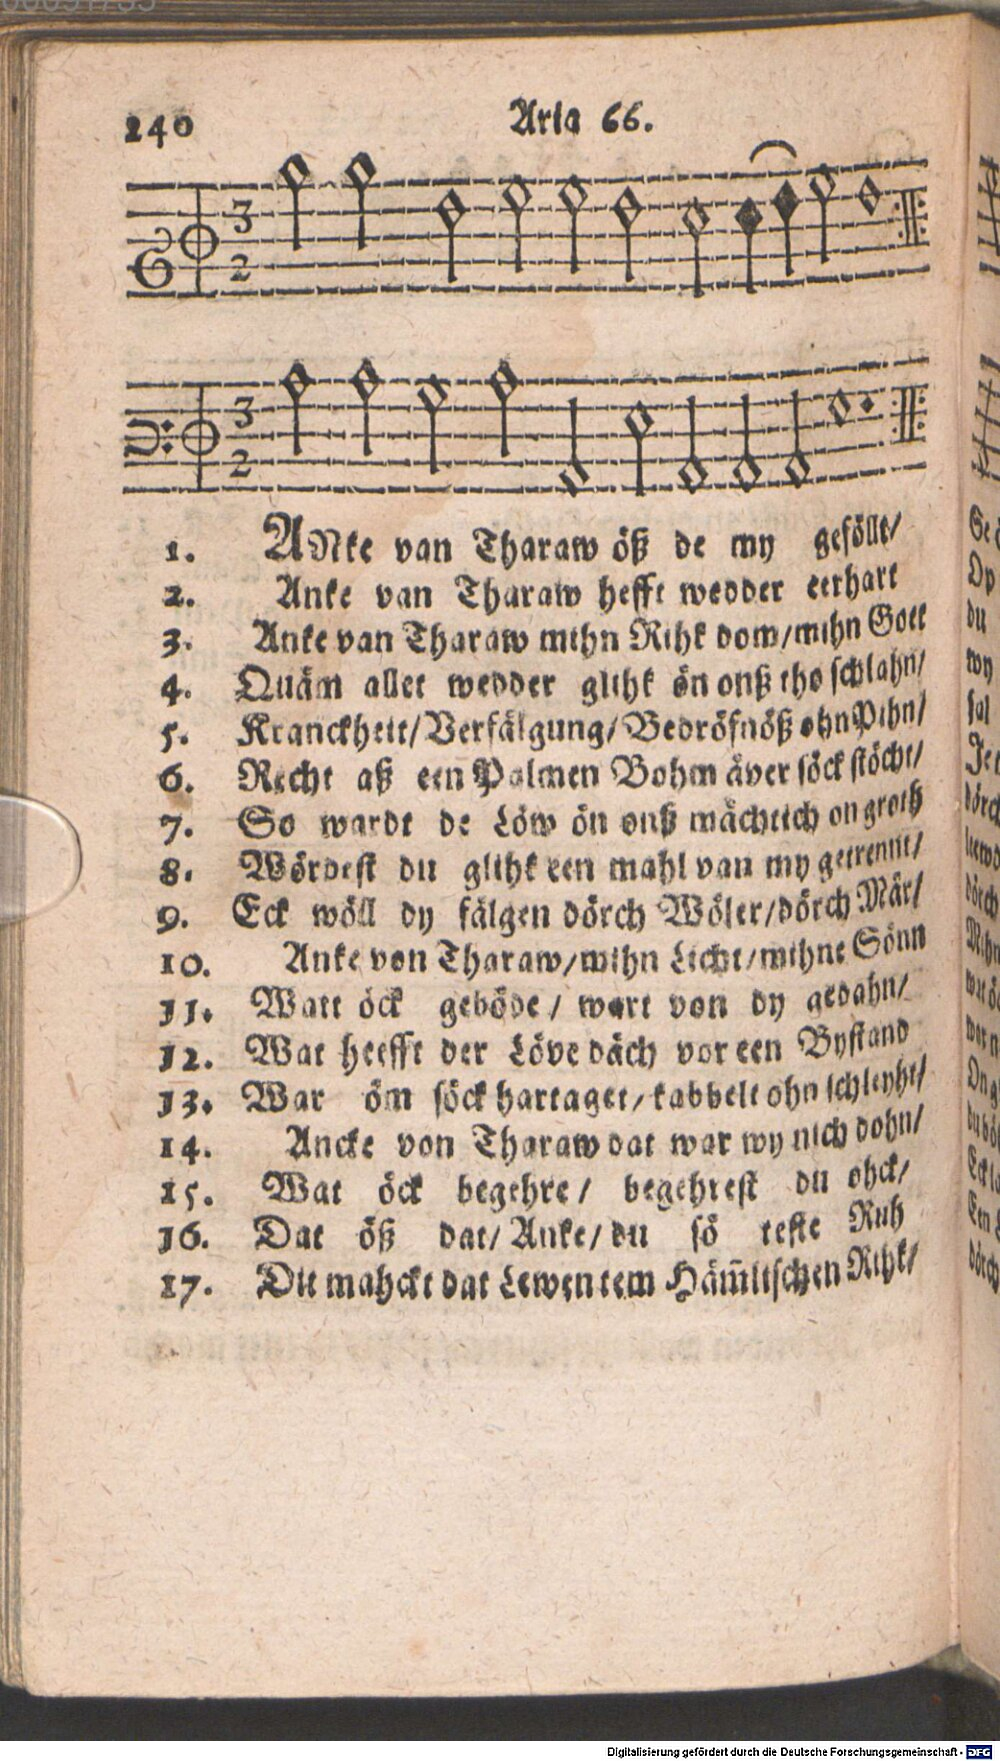 240 Aria 66.
3
2
3
2
1. ANke van Tharaw öß de my geföllt/
2. Anke van Tharaw hefft wedder eerhart
3. Anke van Tharaw mihn Rihk dom/mihn Gott
4. Quäm allet wedder glihk ön onß tho schlahn/
5. Kranckheit/Verfälgung/Bedröfnöß ohn Pihn/
6. Recht aß een Palmen Bohm äver söck stöcht/
7. So wardt de Löw ön onß mächtich on groth
8. Wördest du glihk een mahl van my getrennt/
9. Eck wöll dy fälgen dörch Wöler/dörch Mär/
10. Anke von Tharaw/mihn Licht/mihne Sönn
11. Watt öck geböde/ wart von dy gedahn/
12. Wat heefft der Löve däch vor een Bystand
13. War öm söck hartaget/kabbelt ohn schleyht/
14. Ancke von Tharaw dat war wy nich dohn/
15. Wat öck begehre/ begehrest du ohck/
16. Dat öß dat/Anke/du sö teste Ruh
17. Dit mahckt dat Lewen tem Häm̃lischen Rihk/
Digitalisierung gefördert durch die Deutsche Forschungsgemeinschaft - DFG